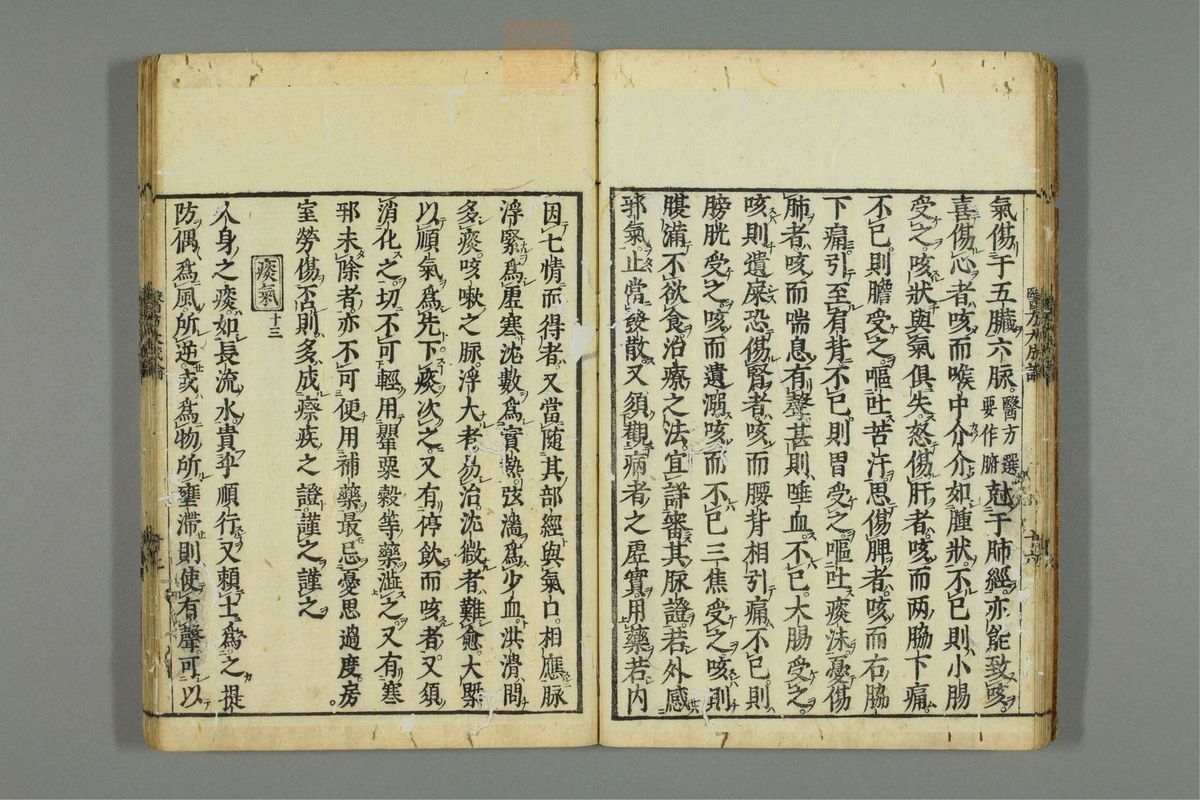 氣傷于五臟六脉醫方選要作腑尅于肺經亦能致咳
喜傷心者咳而喉中介介如腫狀不已則小腸
受之咳狀與氣俱失怒傷肝者咳而两脇下痛
不已則膽受之嘔吐苦汁思傷脾者咳而右脇
下痛引至肩背不已則胃受之嘔吐痰沫憂傷
肺者咳而喘息有聲甚則唾血不已大腸受之
咳則遺屎恐傷腎者咳而腰背相引痛不已則
膀胱受之咳而遺溺咳而不已三焦受之咳則
腹滿不欲食治療之法宜詳審其脉證若外感
邪氣止當發散又須觀病者之虛實用藥若内
因七情而得者又當隨其部經與氣口相應脉
浮緊爲虛寒沈數爲實熱弦濇爲少血洪滑則
多痰咳嗽之脉浮大者易治沈微者難愈大槩
以順氣爲先下痰次之又有停飲而咳者又須
消化之切不可輕用罌粟殼等藥澁之又有寒
邪未除者亦不可便用補藥最忌憂思過度房
室勞傷否則多成瘵疾之證謹之謹之
痰氣 十三
人身之痰如長流水貴乎順行又頼土爲之提
防偶爲風所逆或爲物所壅滯則使有聲可以